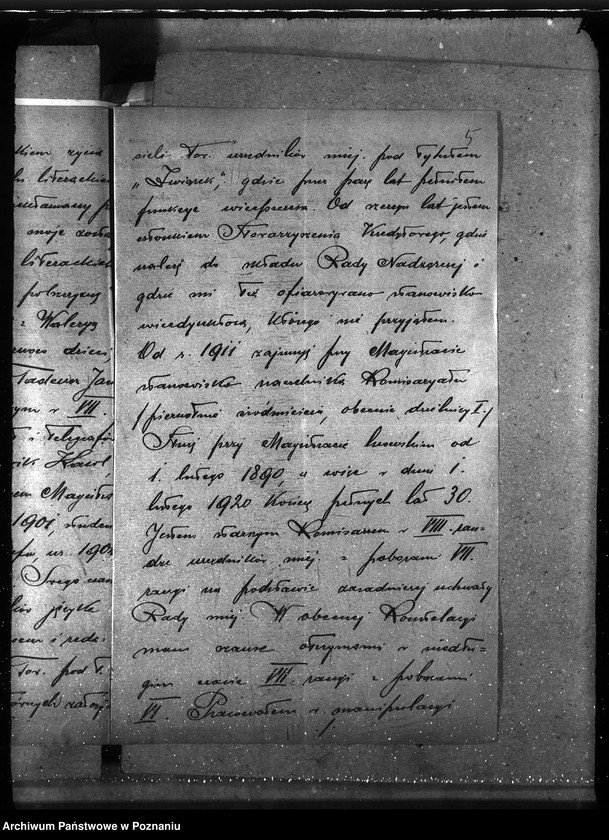 5
cieli Tow. urzędników miej. pod tytułem
„Związek”, gdzie przez parę lat pełniłem
funkcye wiceprezesa. Od szeregu lat jestem
członkiem Stowarzyszenia Kredytowego, gdzie
należę do składu Rady Nadzorczej i
gdzie mi też ofiarowywano stanowisko
wicedyrektora, którego nie przyjąłem.
Od r. 1911 zajmuję przy Magistracie
stanowisko naczelnika Komisaryatu
/pierwotnie śródmieścia, obecnie dzielnicy I./
Służę przy Magistracie lwowskim od
1. lutego 1890, a więc z dniem 1.
lutego 1920 kończę pełnych lat 30.
Jestem starszym Komisarzem w VIII. ran-
dze urzędników miej. z poborami VII.
rangi na podstawie zasadniczej uchwały
Rady miej. W obecnej Konstelacyi
mam szanse otrzymania w niedłu-
gim czasie VII. rangi z poborami
VI. Pracowałem w manipulacyi
kiem życia
literackie
moje
literackich
z Waleryą
dzieci
Tadeusz Jan
VII.
i Telegrafów
Karol,
Magistra
1901,
ur. 190
Swego czasu
języka
i reda-
Tow. pod t.
Archiwum Państwowe w Poznaniu